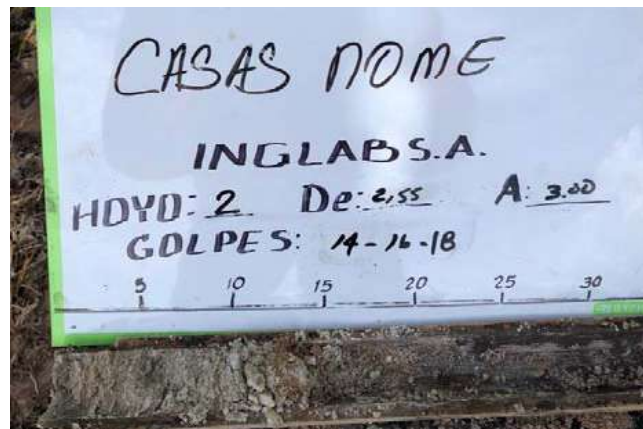 CASAS DOME
INGLAB S.A.
HOYO: 2 De: 2,55 A: 3.00
GOLPES: 14-16-18
5 10 15 20 25 30